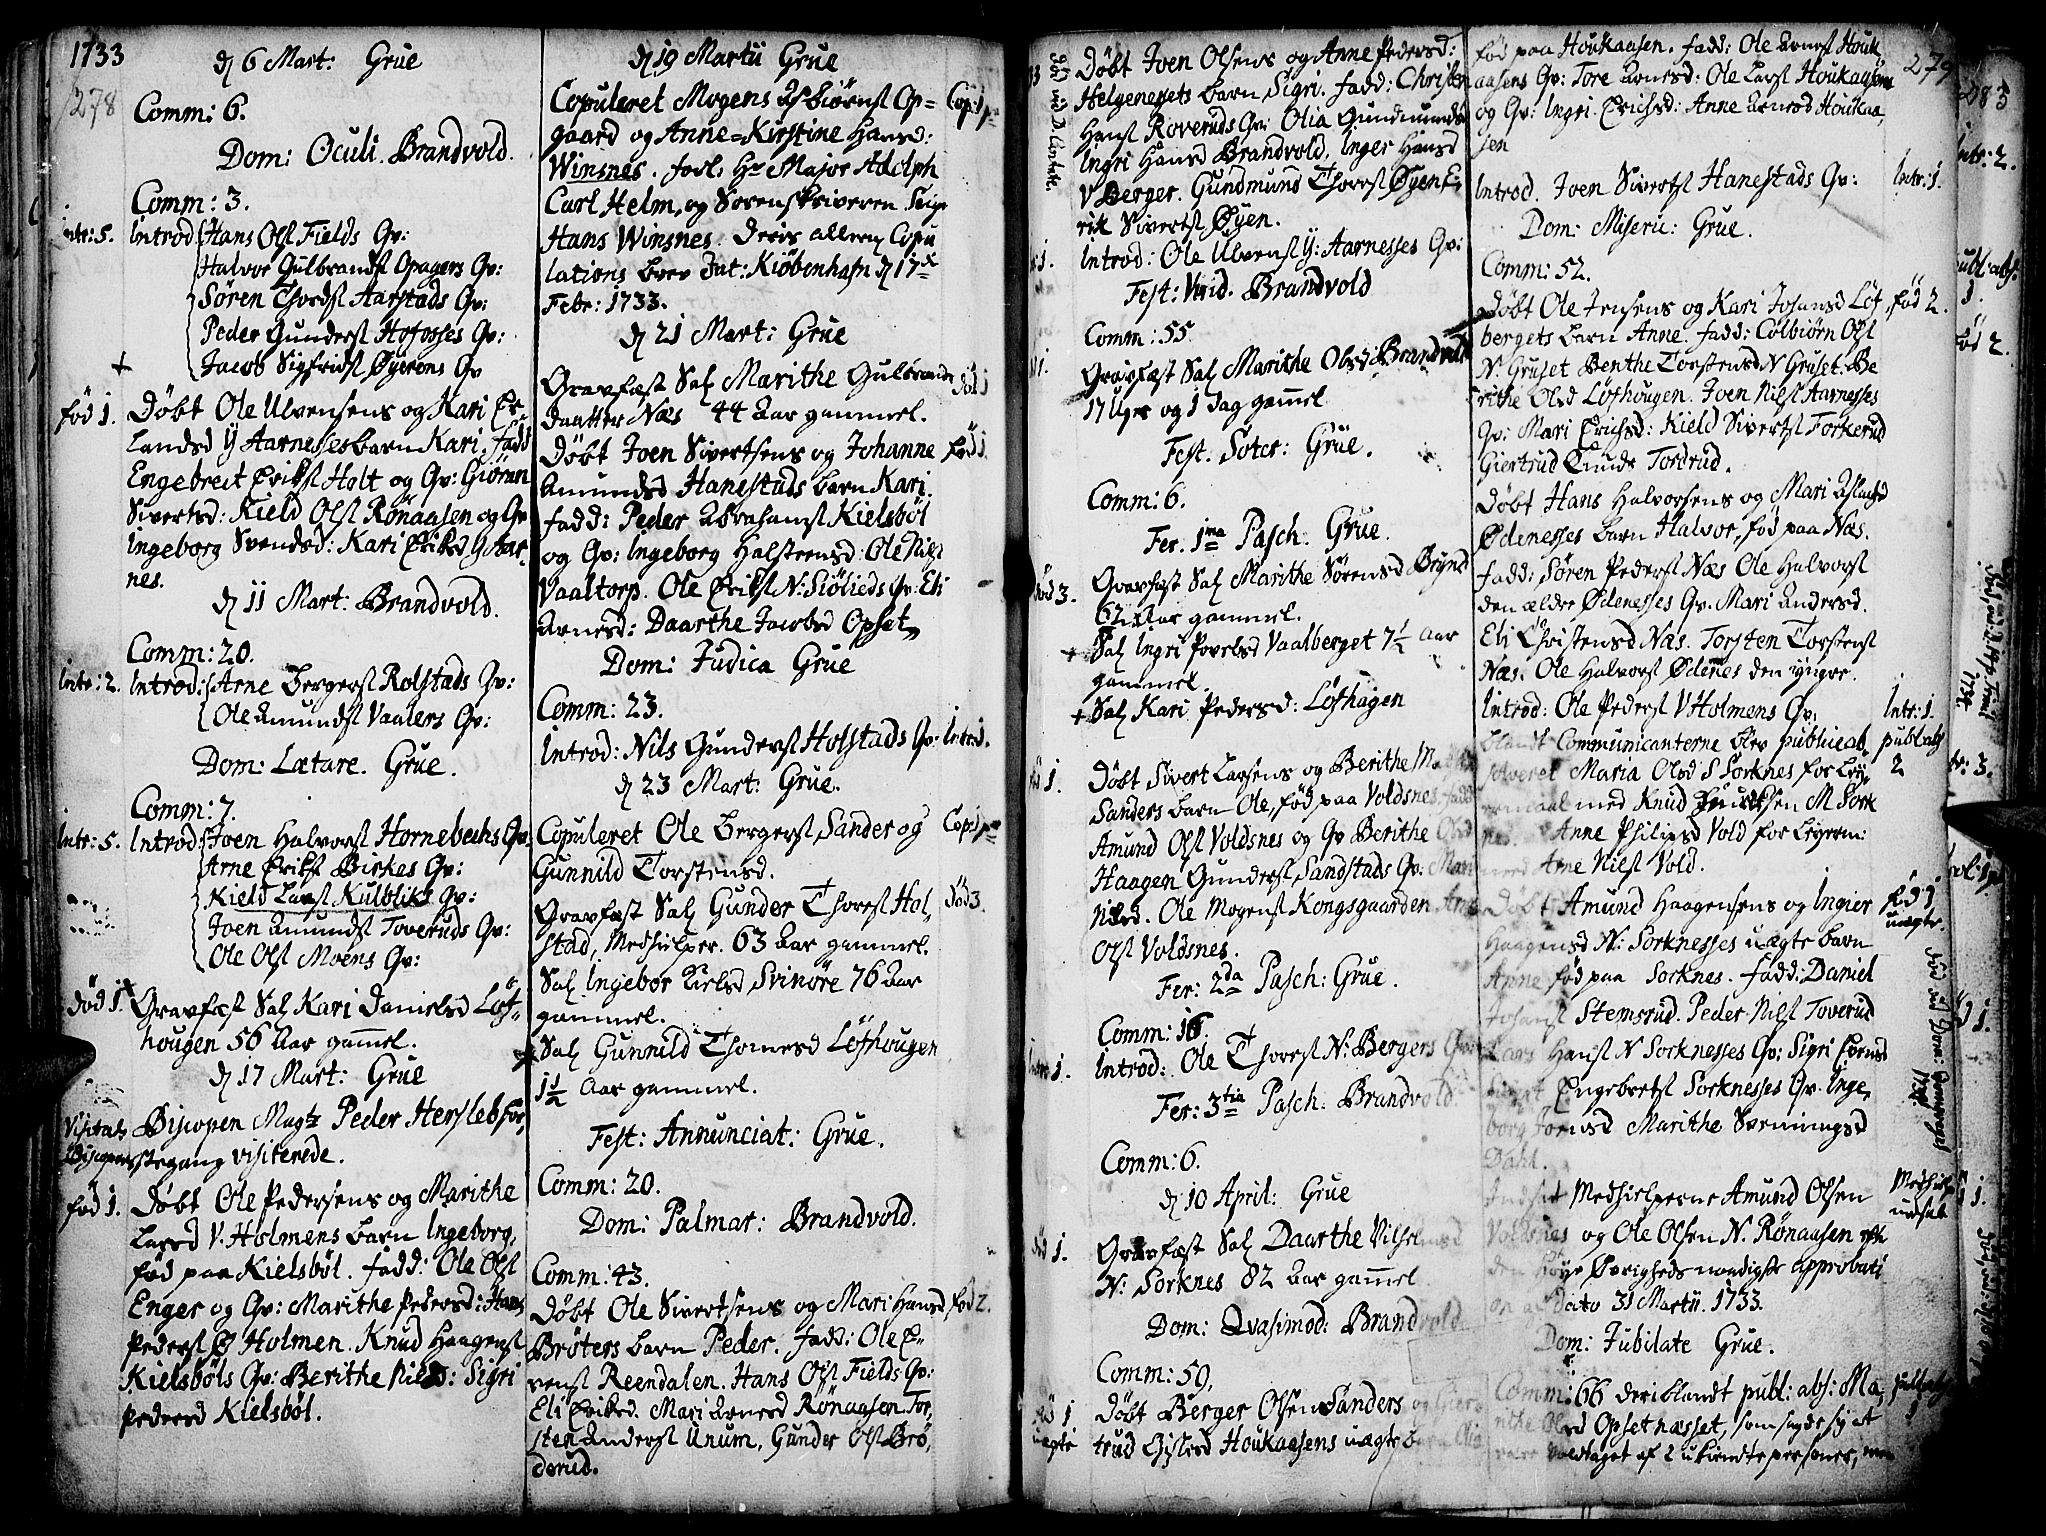 1733
278
d 6 Mart: Grue
Comm: 6.
Dom: Oculi. Brandvold.
Comm: 3.
Intr: 5. Introd: Hans Ols: Fields Qv:
Halvor Gulbrands: Opagers Qv:
Søren Thords: Aarstads Qv:
Peder Gunders: Hofosses Qv:
Jacob Sigfrids: Øyerens Qv
fød 1. Døbt Ole Ulvensens og Kari Er-
landsd Y Aarnesses barn Kari, fadd
Engebret Eriks: Holt og Qv: Giøran
Sivertsd: Kield Ols: Rønaasen og Qv
Ingeborg Svendsd: Kari Eriksd Y Aar-
nes.
d 11 Mart: Brandvold.
Comm: 20.
Intr: 2. Introd: Arne Bergers: Rolstads Qv:
Ole Amunds: Vaalers Qv:
Dom: Lætare. Grue.
Comm: 7.
Intr: 5. Introd: Joen Halvors: Hornebechs Qv
Arne Eriks: Birkes Qv:
Kield Lars: Kulbliks Qv:
Joen Amunds: Toveruds Qv:
Ole Ols: Moens Qv:
død 1. Gravfæst Sal Kari Danielsd Løf-
hougen 56 Aar gamel.
d 17 Mart: Grue
Visitats Biscopen Magtz Peder Hersleb for,
Biscopens stegang visiterede.
fød 1. Døbt Ole Pedersens og Marithe
Larsd V. Holmens barn Ingeborg,
fød paa Kielsbøl. fadd: Ole Ols:
Enger og Qv: Marithe Pedersd: Hans
Peders: Ø Holmen. Knud Haagens:
Kielsbøls Qv: Berithe Nielsd: Sigri
Pedersd Kielsbøl.
d 19 Martii Grue
Copuleret Mogens Asbiørns: Op= Cop: 1
gaard og Anne=Kirstine Hansd:
Winsnes. forl: Hr Major Adolph
Carl Helm, og Sorenskriveren Seigr
Hans Winsnes. Deris allern Copu
lations brev Dat: Kiøbenhafn d 17
Febr: 1733.
d 21 Mart: Grue
Gravfæst Sal Marithe Gulbrands død 1
daatter Næs 44 Aar gammel.
Døbt Joen Sivertsens og Johanne fød 1
Amundsd Hanestads barn Kari.
fadd: Peder Abrahams: Kielsbøl
og Qv: Ingeborg Halstensd: Ole Niels:
Vaaltorp. Ole Eriks: N: Siølieds Qv: Eli
Arnesd: Daarthe Jacobsd Opset,
Dom: Judica Grue
Comm: 23.
Introd: Nils Gunders: Holstads Qv: Intr: 1.
d 23 Mart: Grue.
Copuleret Ole Bergers: Sander og Cop: 1
Gunnild Torstensd.
Gravfæst Sal Gunder Thores: Hol, død 3.
stad, Medhielper. 63 Aar gammel.
Sal Ingebor Nielsd Svinøre 76 Aar
gammel.
Sal Gunnild Thomesd Løfhougen
1½ Aar gammel.
Fest: Annunciat: Grue.
Comm: 20.
Dom: Palmar: Brandvold.
Comm: 43.
Døbt Ole Sivertsens og Mari Hansd fød 2.
Brøters barn Peder. fadd: Ole E-
vens: Reendalen. Hans Ols: Fields Qv:
Eli Eriksd. Mari Arnesd Rønaasen. Tor,
sten Anders: Unum, Gunder Ols: Brø,
derud.
Døbt Joen Olsens og Anne Pedersd:
Helgenessets barn Sigri. fadd: Christen
Hans: Roveruds Qv: Olia Gundmunds
Ingri Hansd Brandvold, Inger Hansd
V Berger. Gundmund Thores: Øyen E-
rik Siverts: Øyen.
Introd: Ole Ulvens: Y: Aarnesses Qv:
Fest: Virid. Brandvold
Comm: 55.
Gravfæst Sal Marithe Olsd Brandvold
17 Uger og 1 Dag gamel
Fest. Soter: Grue.
Comm: 6.
Fer. 1ma Pasch. Grue.
død 3. Gravfæst Sal Marithe Sørensd Grynd
62 Aar gammel.
Sal Ingri Povelsd Vaalberget 7½ Aar
gammel.
Sal Kari Pedersd: Løfhagen
fød 1. Døbt Sivert Larsens og Berithe
Sanders barn Ole, fød paa Voldsnes. fadd
Amund Ols: Voldsnes og Qv Berithe Olsd
Haagen Gunders: Sandstads Qv: Mari
Nielsd. Ole Mogens: Kongsgaarden
Ols: Voldsnes.
Fer: 2da Pasch: Grue.
Comm: 16.
Intr: 1. Introd: Ole Thores: N: Bergers Qv:
Fer: 3tia Pasch: Brandvold.
Comm: 6.
d 10 April: Grue
død 1. Gravfæst Sal Daarthe Vilhelmsd
N: Sorknes 82 Aar gamel
Dom: Qvasimod: Brandvold
Comm: 59.
fød 1 Døbt Berger Olsen Sanders og Gier
uægte trud Gislesd Houkaasens uægte barn
279
fød paa Houkaasen. fadd: Ole Arnes: Houk
aasens Qv: Tore Arnesd: Ole Lars: Houkaasen
og Qv: Ingri Erichsd: Anne Arnesd Houkaa,
sen
Introd. Joen Siverts: Hanestads Qv: Intr: 1.
Dom: Miseric: Grue.
Comm: 52.
Døbt Ole Jensens og Kari Johansd Løf, fød 2.
bergets barn Anne. fadd: Colbiørn Ols:
N: Gruset Benthe Torstensd N Gruset. Be
rithe Olsd Løfhougen. Joen Niels: Aarnesses
Qv: Mari Erichsd: Kield Siverts: Forkerud
Giertrud Knuds Tordrud.
Døbt Hans Halvorsens og Mari Aslachsd
Ødenesses barn Halvor, fød paa Næs.
fadd: Søren Peders: Næs Ole Halvors:
den ældre Ødenesses Qv. Mari Andersd.
Eli Christensd Næs. Torsten Torstens:
Næs. Ole Halvors: Ødenes den yngre.
Introd: Ole Peders: V Holmens Qv. Intr: 1.
blandt Communicanterne blev publice ab, publ: abs
solveret Maria Olsd S Sorknes for Ley, 2
ermaal med Knud Knudsen M Sork
nes. Anne Philipsd Vold for Leyerm:
med Arne Niels: Vold.
Døbt Amund Haagensens og Ingier fød 1
Haagensd N: Sorknesses uægte barn uægte.
Anne fød paa Sorknes. fadd: Daniel
Johans: Stemsrud. Peder Niels: Toverud
Lars Hans: N Sorknesses Qv: Sigri
Engebrets: Sorknesses Qv. Inge,
borg Marithe Svenningsd
Dahl.
Indsat Medhielperne Amund Olsen Medhielp
Voldsnes og Ole Olsen N. Rønaasen efter indsat
den høye Øvrigheds naadigste approbati
on af Dato 31 Martii. 1733.
Dom: Jubilate Grue.
Comm: 66 deriblandt publ: abs: Ma, publ: abs
rithe Olsd Opsetnæsset, som sagde sig at 1
være voldtaget af 2 ukiendte personer,